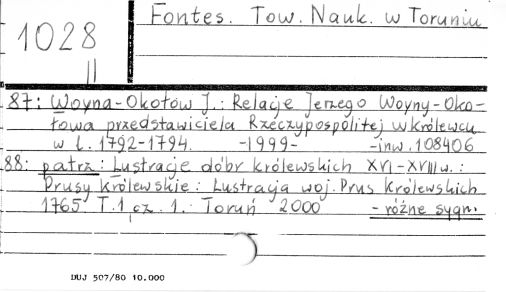 1028
II
Fontes. Tow. Nauk. w Toruniu
87: Woyna-Okołów J.: Relacje Jerzego Woyny-Oko-
łowa przedstawiciela Rzeczypospolitej w Królewcu
w l. 1792-1794. -1999- -inw. 108406
88: patrz: Lustracje dóbr królewskich XVI-XVIII w.:
Prusy Królewskie: Lustracja woj. Prus Królewskich
1765. T.1, cz. 1. Toruń 2000 - różne sygn.
DUJ 507/80 10.000